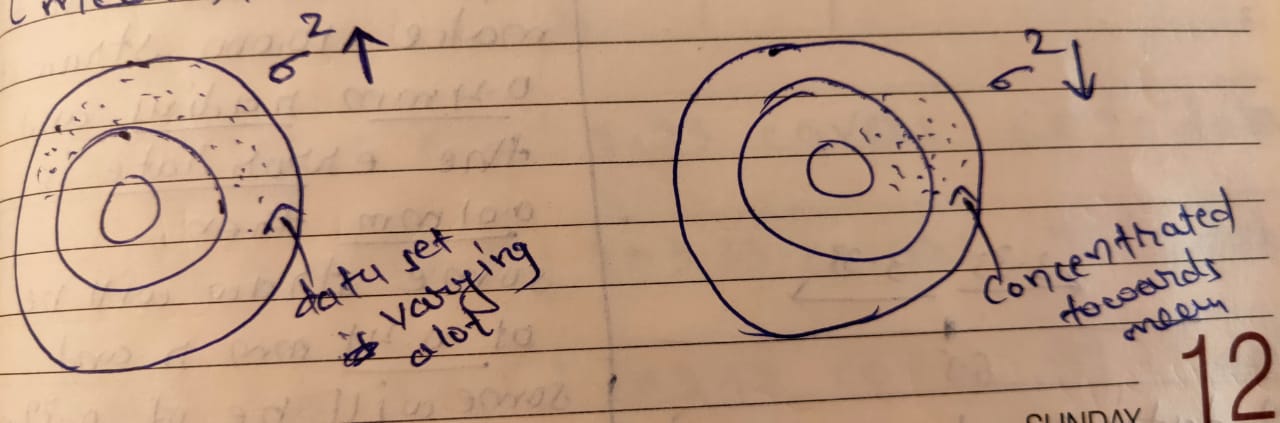 σ² ↑
data set
varying
a lot
σ² ↓
Concentrated
towards
mean
12
SUNDAY